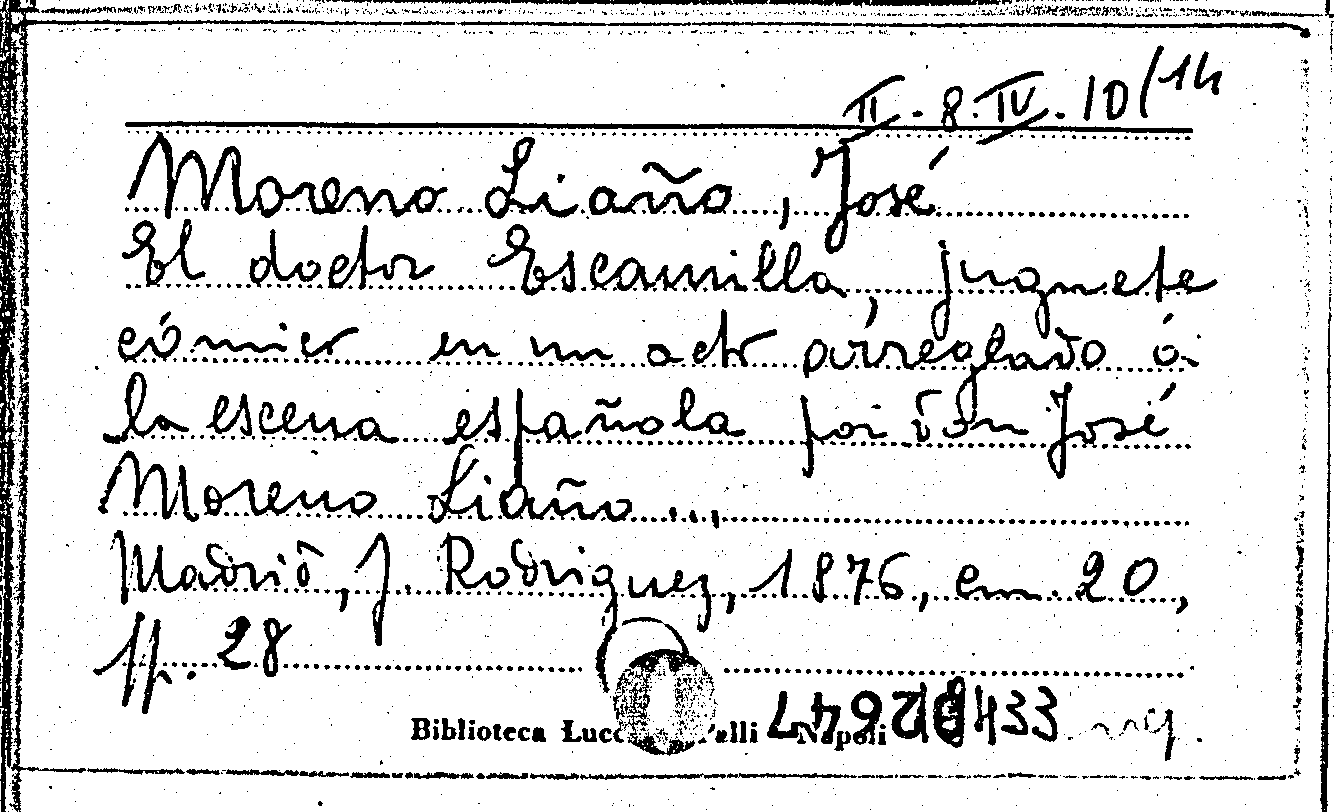 II. 8. IV. 10/14
Moreno Liaño, José
El doctor Escamilla, juguete
cómico en un acto arreglado á
la escena española por don José
Moreno Liaño...
Madrid, J. Rodriguez, 1876, cm. 20,
pp. 28
Biblioteca Lucc alli Napoli